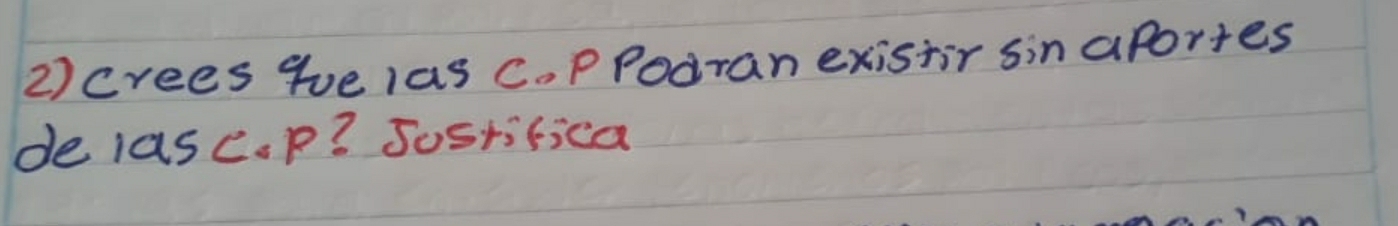 2) crees que las C.P Podran existir sin aportes
de las C.P? Justifica